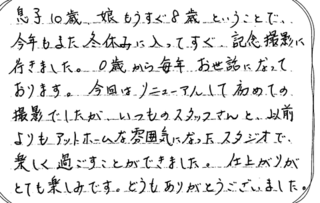 息子10歳 娘もうすぐ8歳 ということで、
今年もまた冬休みに入ってすぐ、記念撮影に
行きました。0歳から毎年お世話になって
おります。今回はリニューアルして初めての
撮影でしたが、いつものスタッフさんと、以前
よりもアットホームな雰囲気になったスタジオで、
楽しく過ごすことができました。仕上がりが
とても楽しみです。どうもありがとうございました。